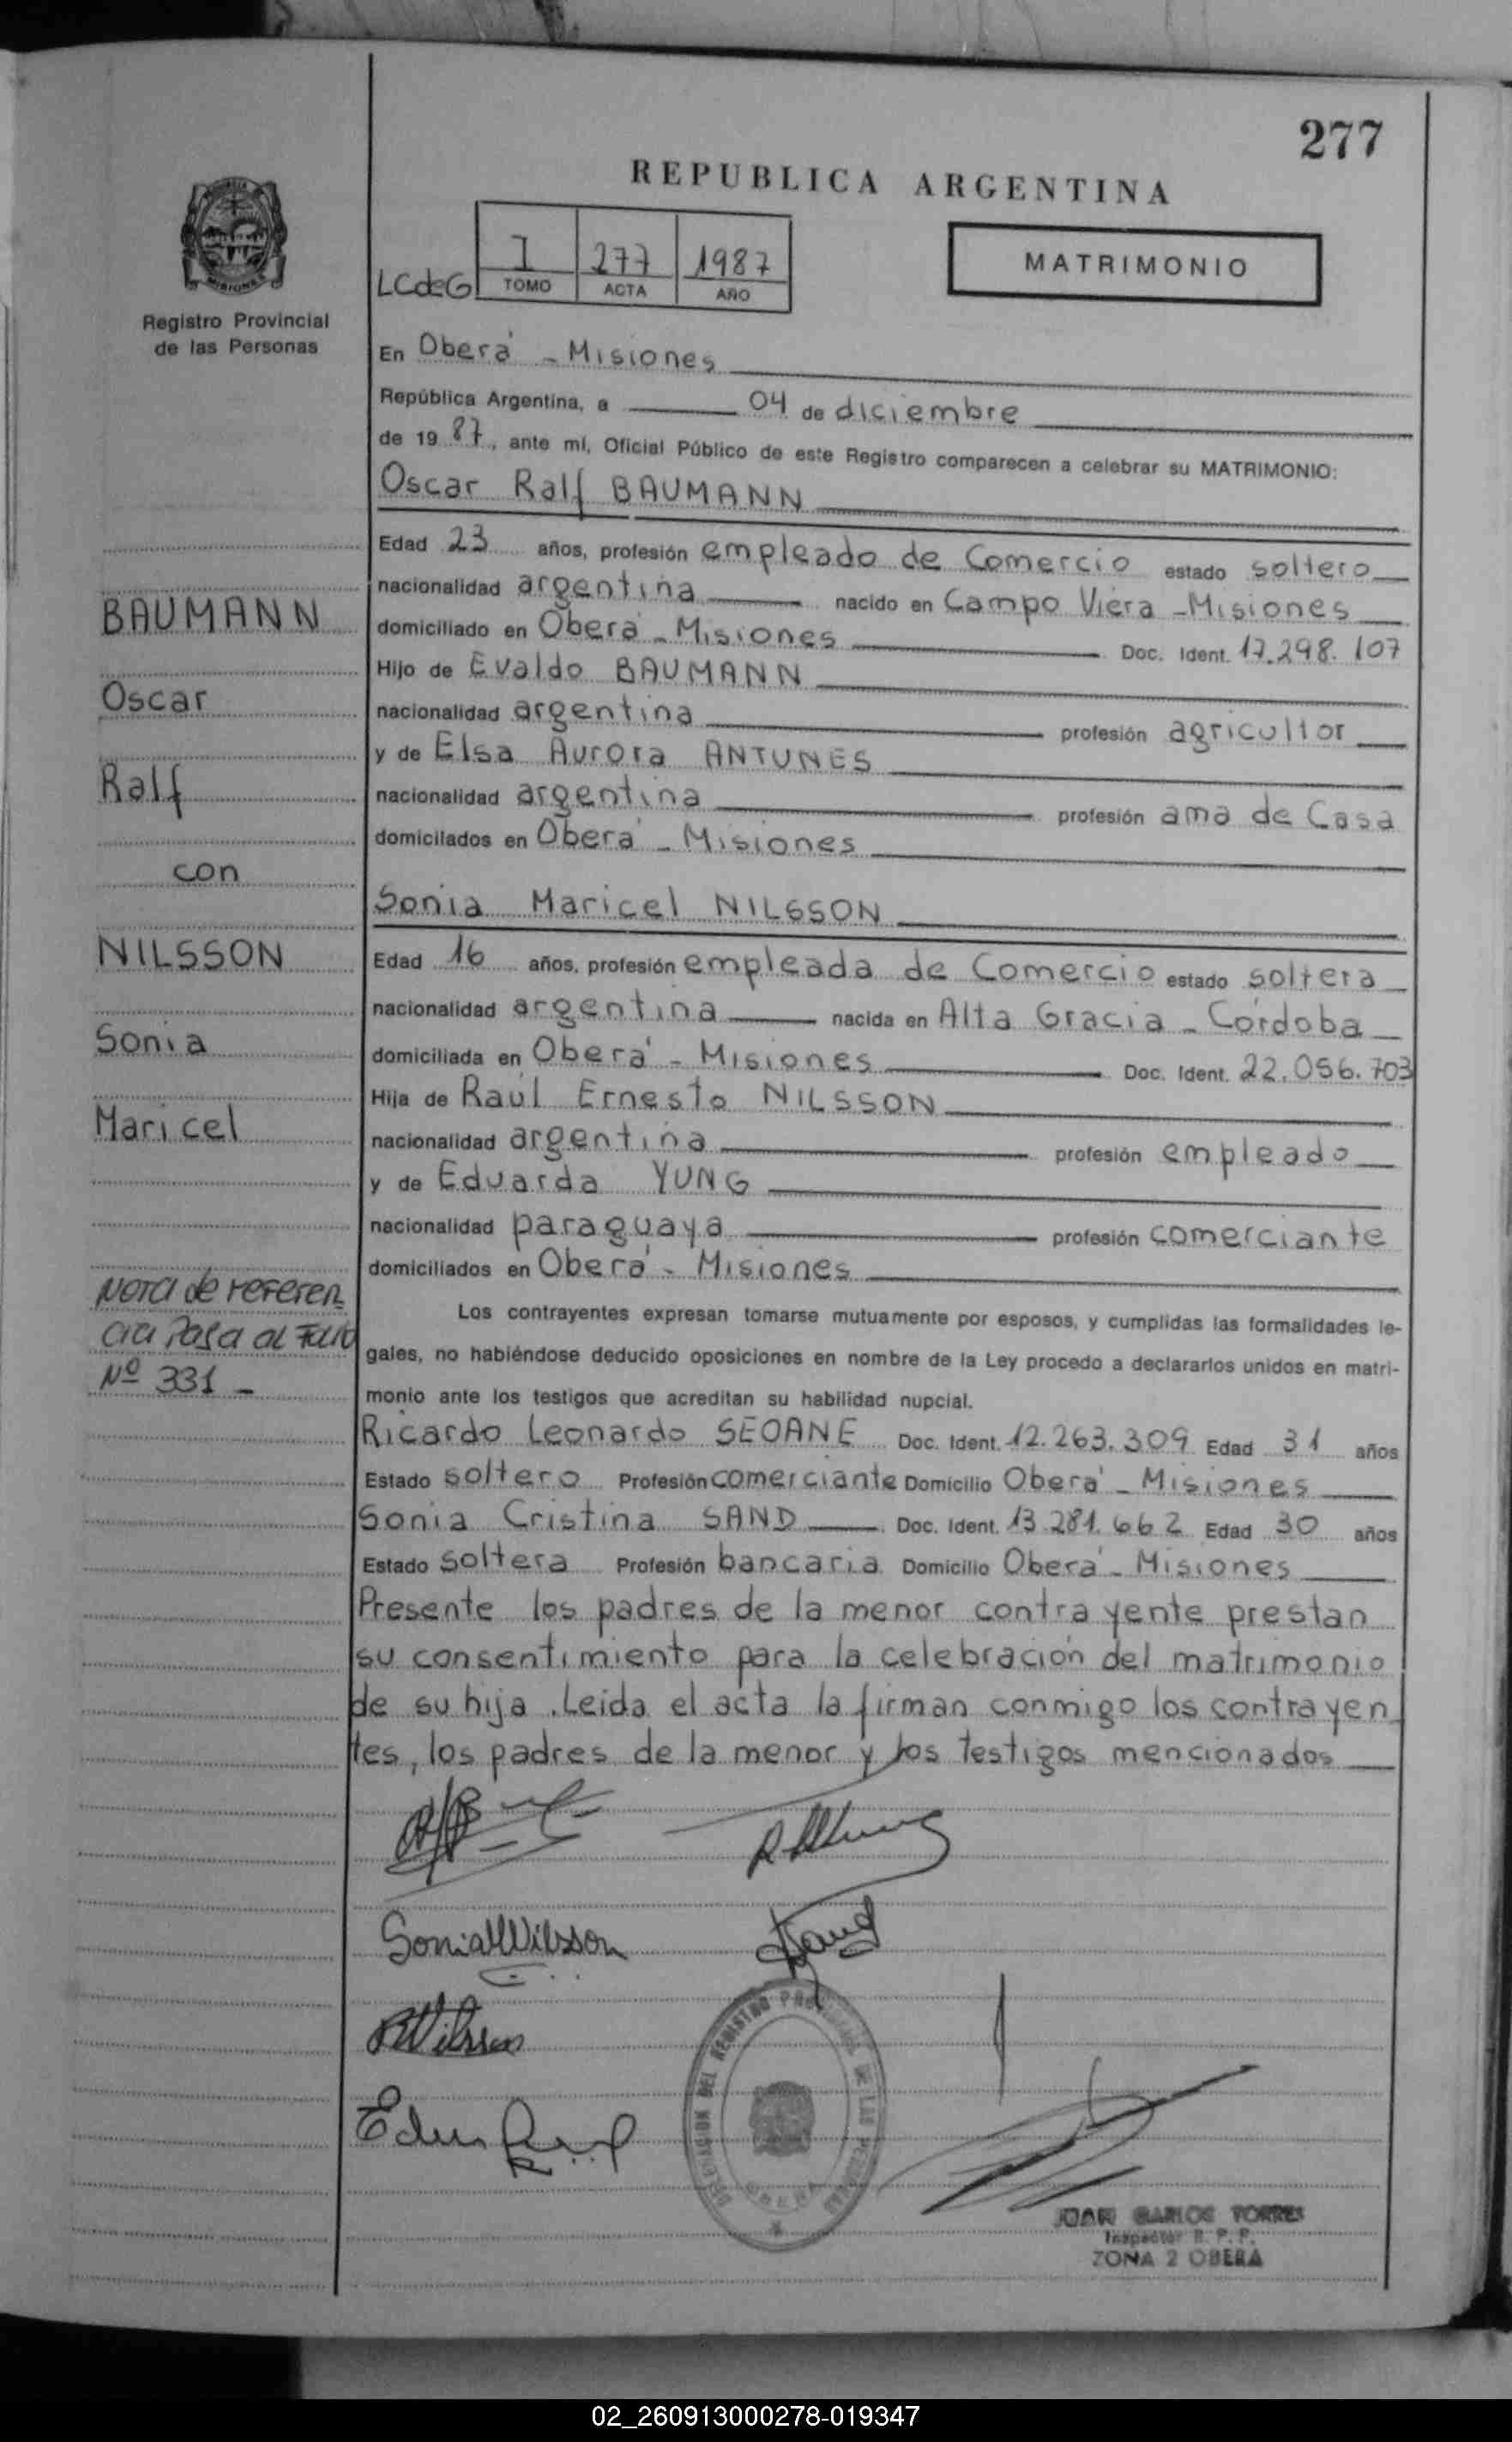 277
REPUBLICA ARGENTINA
MISIONES
Registro Provincial
de las Personas
LCdeG
I 277 1987
TOMO ACTA AÑO
MATRIMONIO
En Oberá - Misiones
República Argentina, a 04 de diciembre
de 19 87, ante mí, Oficial Público de este Registro comparecen a celebrar su MATRIMONIO:
Oscar Ralf BAUMANN
Edad 23 años, profesión empleado de Comercio estado soltero
nacionalidad argentina nacido en Campo Viera - Misiones
domiciliado en Oberá - Misiones Doc. Ident. 17.298.107
Hijo de Evaldo BAUMANN
nacionalidad argentina profesión agricultor
y de Elsa Aurora ANTUNES
nacionalidad argentina profesión ama de Casa
domiciliados en Oberá - Misiones
Sonia Maricel NILSSON
Edad 16 años, profesión empleada de Comercio estado soltera
nacionalidad argentina nacida en Alta Gracia - Córdoba
domiciliada en Oberá - Misiones Doc. Ident. 22.056.703
Hija de Raúl Ernesto NILSSON
nacionalidad argentina profesión empleado
y de Eduarda YUNG
nacionalidad paraguaya profesión comerciante
domiciliados en Oberá - Misiones
Los contrayentes expresan tomarse mutuamente por esposos, y cumplidas las formalidades le-
gales, no habiéndose deducido oposiciones en nombre de la Ley procedo a declararlos unidos en matri-
monio ante los testigos que acreditan su habilidad nupcial.
Ricardo Leonardo SEOANE Doc. Ident. 12.263.309 Edad 31 años
Estado soltero Profesión comerciante Domicilio Oberá - Misiones
Sonia Cristina SAND Doc. Ident. 13.281.662 Edad 30 años
Estado soltera Profesión bancaria Domicilio Oberá - Misiones
Presente los padres de la menor contrayente prestan
su consentimiento para la celebración del matrimonio
de su hija. Leída el acta la firman conmigo los contrayen
tes, los padres de la menor y los testigos mencionados
BAUMANN
Oscar
Ralf
con
NILSSON
Sonia
Maricel
Nota de referen
cia Pasa al Folio
Nº 331 -
Sonia Nilsson
RNilsson
DELEGACION DEL REGISTRO PROVINCIAL DE LAS PERSONAS
OBERA
JUAN CARLOS TORRES
Inspector R. P. P.
ZONA 2 OBERA
02_260913000278-019347